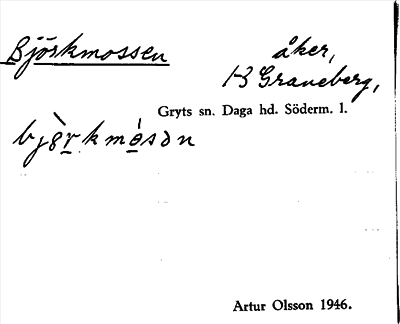 Björkmossen åker,
1-3 Graneberg,
Gryts sn. Daga hd. Söderm. l.
bjö̀r̲kmó̲sən
Artur Olsson 1946.